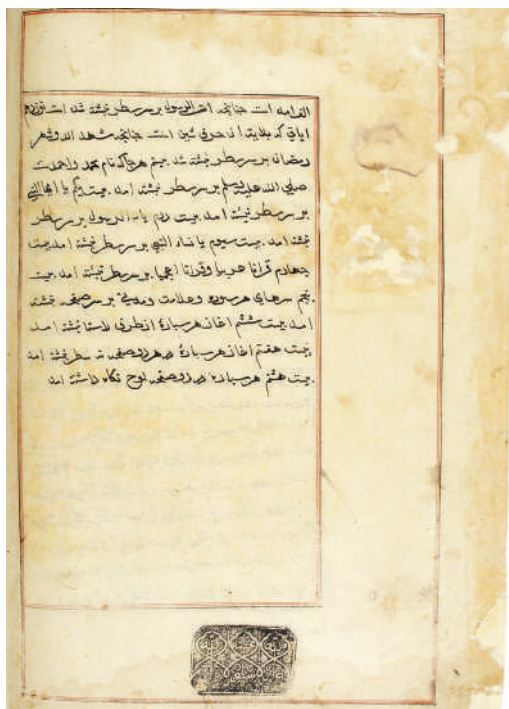 الف امده است چنانچه امن الرسول بر سر سطر نبشته شده است
ایاتی که بدایة ان حرف شین است چنانچه شهد الله و شهر
رمضان بر سر سطر نبشته شد هرجا که نام محمد و احمد است
صلی الله علیه وسلم بر سر سطر نبشته امد بیت یا ایها النبی
بر سر سطر نبشته امد بیت دهم یاء الرسول بر سر سطر
نبشته امد بیت سیوم یا نساء النبی بر سر سطر نبشته امد بیت
چهارم قرانا عربیا و قرانا اعجمیا بر سر سطر نبشته امد بیت
پنجم سرهای هر سوره و علامت بر سر صفحه نبشته
امد بیت ششم اغاز هر سپاره از طرف نبشته امد
بیت هفتم اغاز هر سپاره هر دو صفحه سطر نبشته امد
بیت هشتم هر سپاره دو صفحه لوح نگاه داشته امد